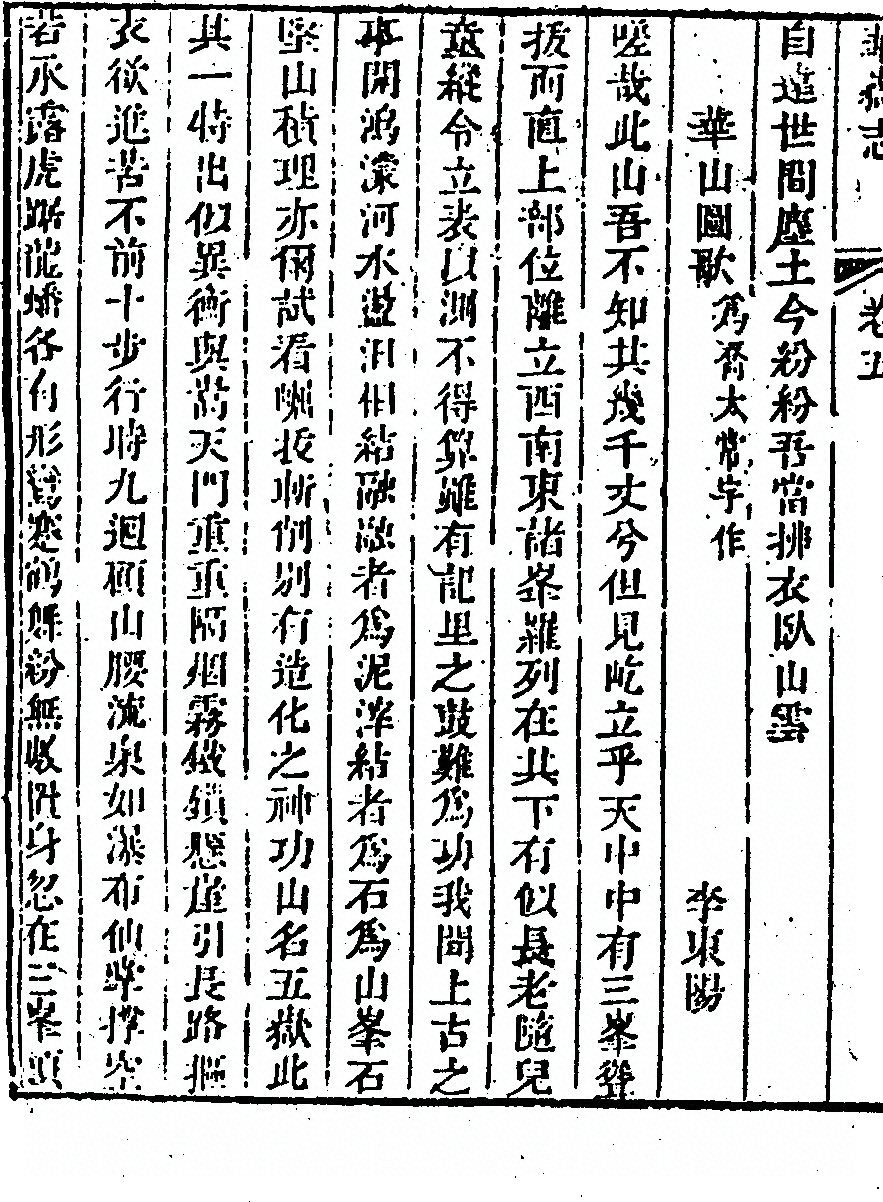 華嶽志 卷五
自遠世間塵土今紛紛吾當拂衣臥山雲
華山圖歌 為喬太常宇作 李東陽
嗟哉此山吾不知其幾千丈兮但見屹立乎天中中有三峯聳
拔而直上部位離立西南東諸峯羅列在其下有似長老隨兒
童縱令立表以測不得算雖有記里之鼓難為功我聞上古之
事開鴻濛河水盪汨相結融融者為泥滓結者為石為山峯石
堅山積理亦爾試看 拔斬削別有造化之神功山名五嶽此
其一特出似異衡與嵩天門重重隔烟霧鐵鎖懸崖引長路摳
衣欲進苦不前十步行時九迴頭山腰流泉如瀑布仙掌撐空
若承露虎踞龍蟠各有形鸞 鶴 紛無數恍身忽在三峯頂